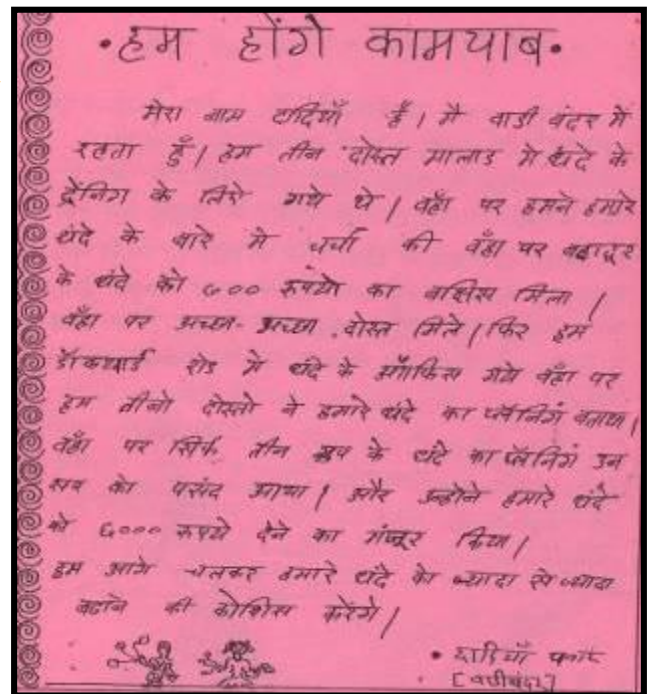 •हम होंगे कामयाब•
मेरा नाम हैं। मै वाडी बंदर में
रहता हुँ। हम तीन दोस्त मालाड मे धंदे के
ट्रेनिग के लिये गये थे। वहाँ पर हमने हमारे
धंदे के बारे मे चर्चा की वँहा पर बहादूर
के धंदे को ७०० रुपये का बक्षिस मिला।
वँहा पर अच्छा-अच्छा दोस्त मिले। फिर हम
डॉकयार्ड रोड मे धंदे के ऑफिस गये वहाँ पर
हम तीनो दोस्तो ने हमारे धंदे का प्लॅनिगं बताया।
वँहा पर सिर्फ तीन ग्रुप के धंदे का प्लॅनिगं उन
सब को पसंद आया। और उन्होने हमारे धंदे
को रुपये देने का मंजूर किया।
हम आगे चलकर हमारे धंदे को ज्यादा से ज्यादा
बढाने की कोशिस करेंगे।